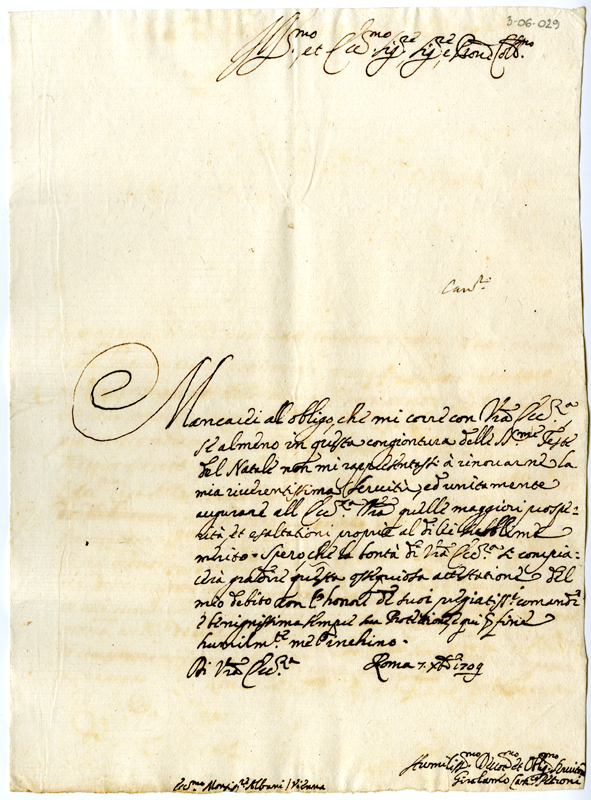 3-06-029
Ill.mo et Ecc.mo Sig.re Sig.re e Pron Col.mo
Can.re
Mancarei all obligo, che mi corre con V.ra Ecc.za
se almeno in questa congiontura delle S.me Feste
del Natale non mi rappresentassi à rinovarne la
mia riverentissima servitù, ed unitamente
augurare all Ecc.za V.ra quelle maggiori prospe-
rità et esaltationi proprie al di lei sublime
merito. Spero, che la bontà di V.ra Ecc.za si compia-
cerà gradire questa ossequiosa attestatione del
mio debito con l'honore de suoi pregiatiss.i comandi
e benignissima sempre sua Protettione, e qui per fine
humilm.te me l'inchino.
Di V.ra Ecc.za Roma 7. Xbre 1709
Humiliss.mo Devot.mo et Oblig.mo Servitore
Girolamo Petroni
Ecc.mo Monsig.re Albani / Vienna